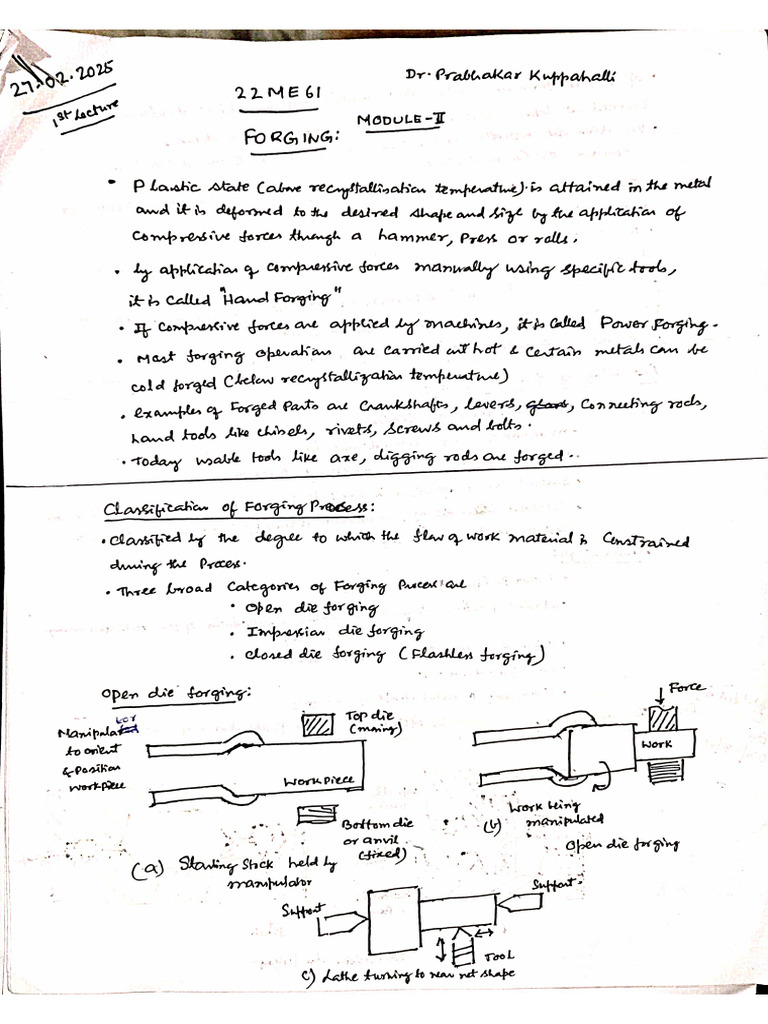 27-02.2025
1st Lecture
Dr. Prabhakar Kuppahalli
22ME61
MODULE-II
FORGING:
• Plastic state (above recrystallisation temperature) is attained in the metal
and it is deformed to the desired shape and size by the application of
Compressive forces through a hammer, Press or rolls.
• by application of Compressive forces manually using specific tools,
it is called "Hand Forging"
• If Compressive forces are applied by machines, it is called Power Forging.
• Most forging operations are carried out hot & Certain metals can be
cold forged (below recrystallization temperature)
• examples of Forged Parts are Crankshafts, levers, gears, Connecting rods,
hand tools like chisels, rivets, screws and bolts.
• Today usable tools like axe, digging rods are forged.
Classification of Forging Process:
• Classified by the degree to which the flow of work material is Constrained
during the Process.
• Three broad Categories of Forging Process are
• Open die forging
• Impression die forging
• Closed die forging (Flashless forging)
Open die forging:
Manipulator
to orient
& Position
workpiece
Top die
(moving)
Workpiece
Bottom die
or anvil
(fixed)
(a) Starting Stock held by
manipulator
Force
Work
Work being
(b) manipulated
Open die forging
Support
Support
Tool
c) Lathe turning to near net shape